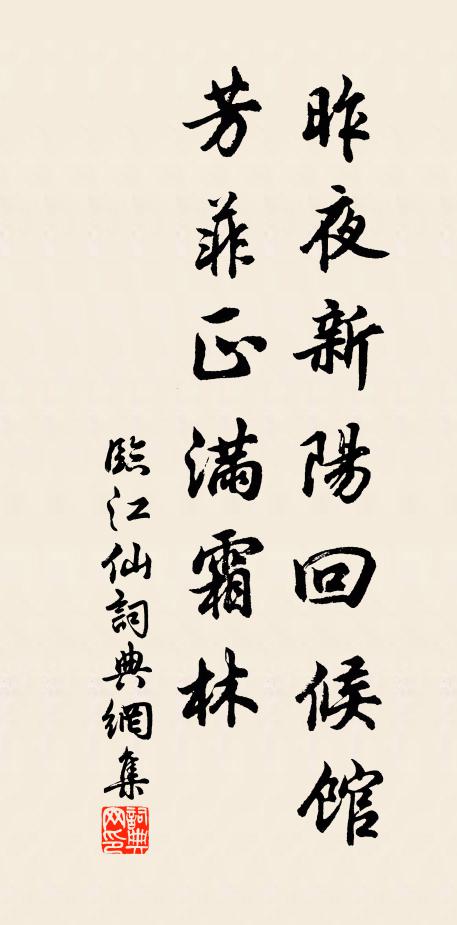 昨夜新陽回候館
芳菲正滿霜林
臨江仙詞典網集
詞典网印